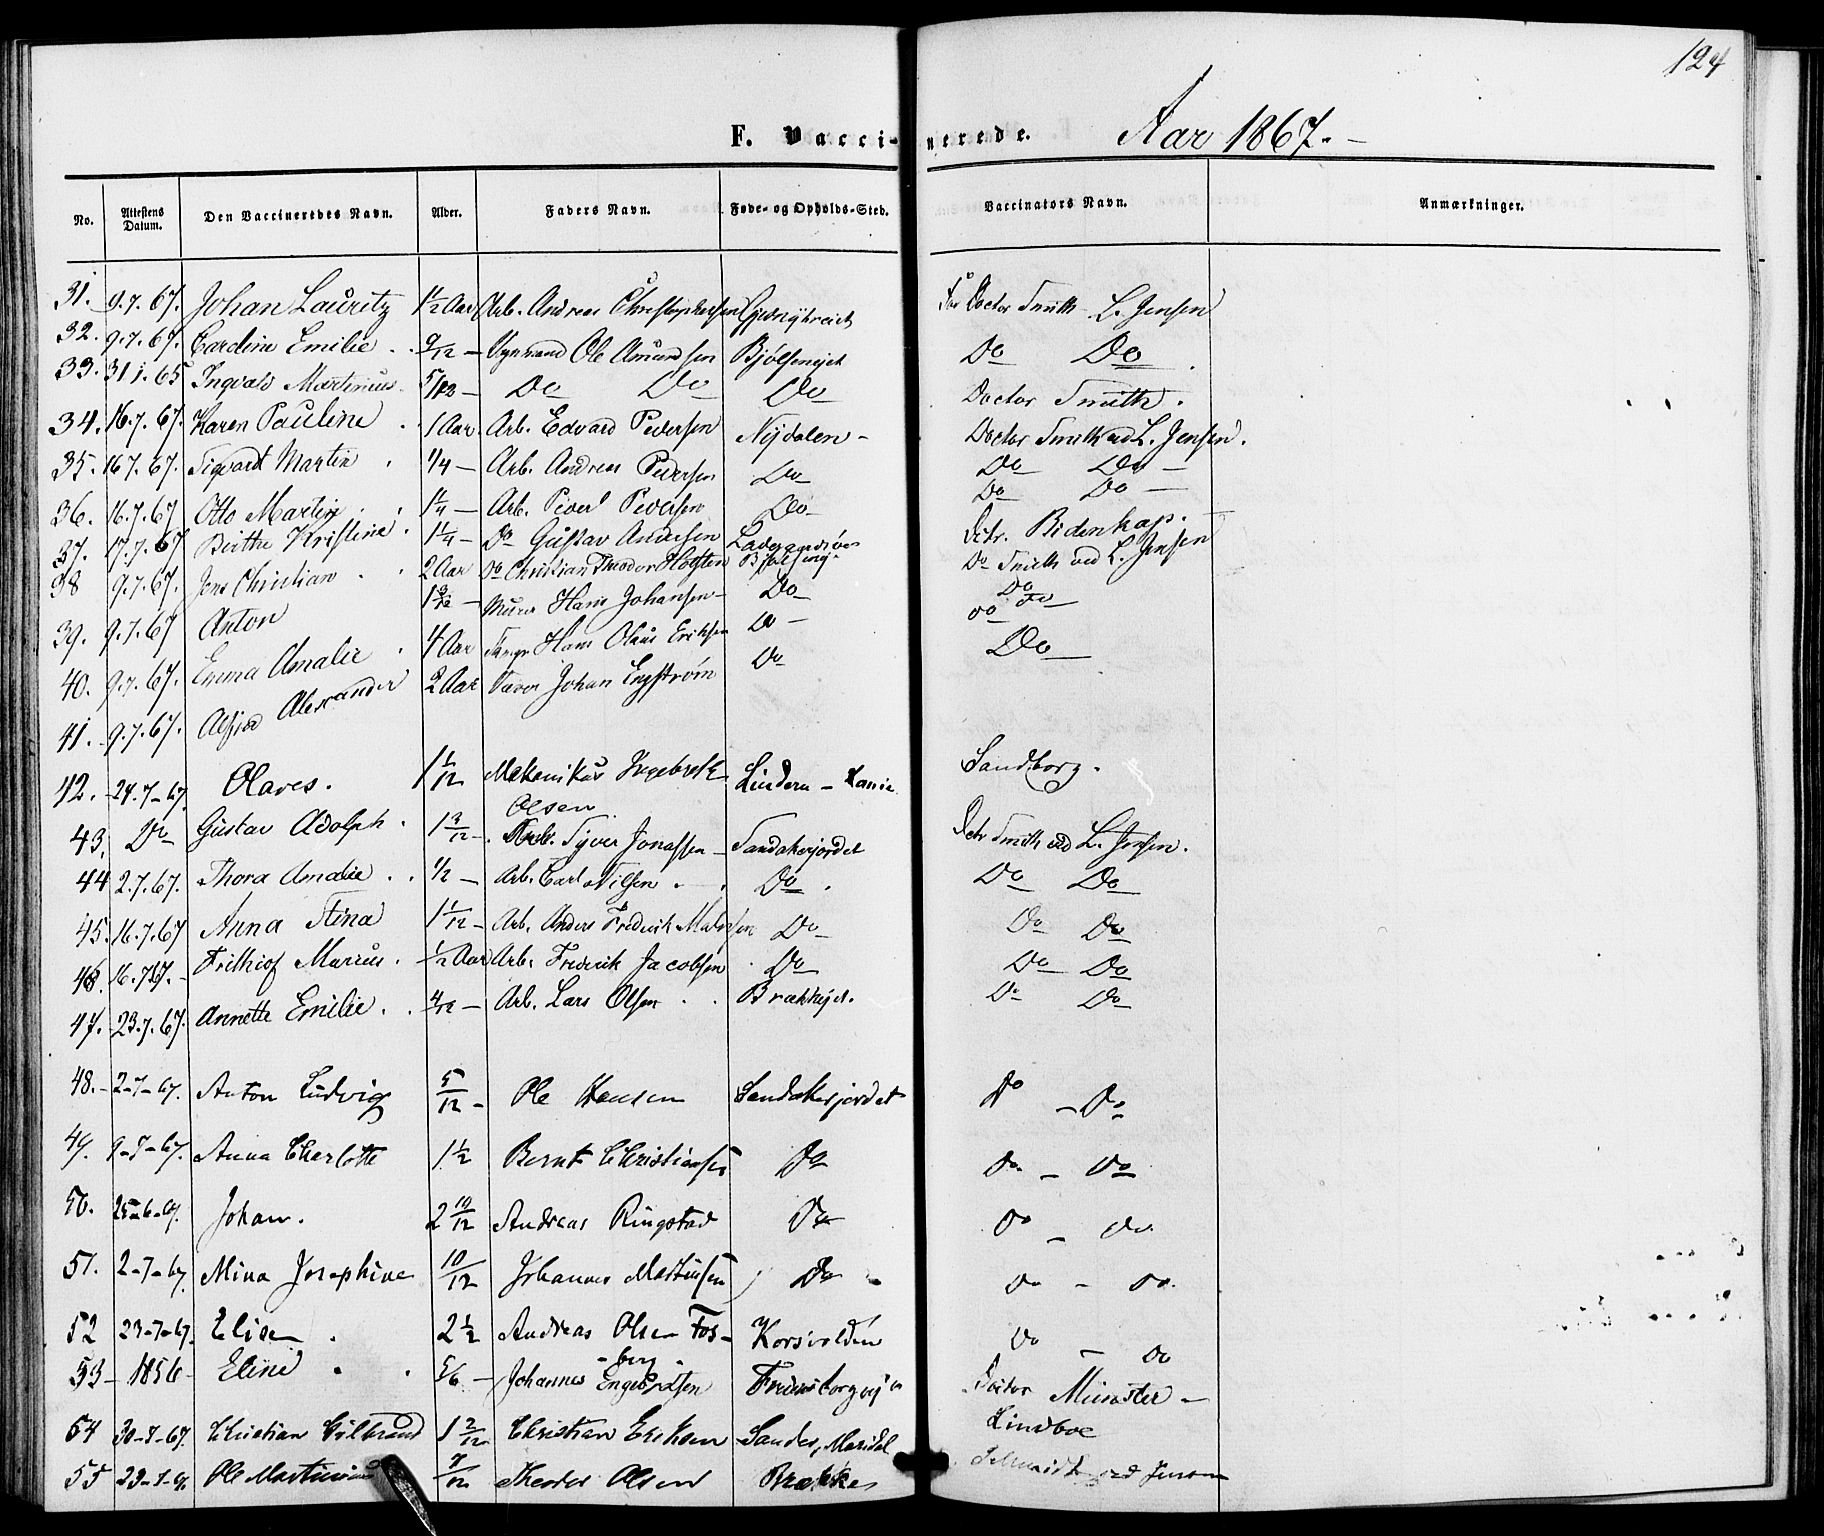 124
F. Vaccinerede. Aar 1867.-
No. Attestens Datum. Den Vaccineredes Navn. Alder. Faders Navn. Føde- og Opholds-Sted. Vaccinators Navn. Anmærkninger.
31. 9.7.67. Johan Lauritz 1½ Aar Arb. Andreas Christophersen Doctor Smith L. Jensen
32. 9.7.67. Caroline Emilie 9/12 - Ole Amundsen Bjølsenejet Do Do
33. 31 1.65 Ingvald Martinius Do Do Do Doctor Smith.
34. 16.7.67. Karen Pauline 1 Aar Arb. Edvard Pedersen Nydalen - Doctor Smith ved L. Jensen.
35. 16.7.67. Sigvard Martin 1/4 - Arb. Andreas Pedersen Do Do Do -
36. 16.7.67 Otto Martin 1¼ - Arb. Peder Pedersen Do Do Do -
37. 17.7.67 Birthe Kristine 1¼ - Do Gustav Andersen Dctr. Bidenkap.
38 9.7.67. Jens Christian 2 Aar Do Christian Theodor Holsten Do Smith ved L. Jensen
39. 9.7.67 Anton Murer Hans Johansen Do Do Do
40. 9.7.67. Emma Amalie Hans Olaus Eriksen Do Do
41. 9.7.67. Alfred Alexander 2 Aar Johan Engstrøm Do Do
42. 24.7-67. Olaves. 1 1/12 Mekanikus Ingebreth Olsen Lindern - Sandborg.
43. Do Gustav Adolph. 1 3/12 - Arb. Syver Jonassen - Sandakerjordet Dctr Smith ved L. Jensen.
44 2.7.67. Thora Amalie 1/2 - Arb. Carl Nilsen Do Do Do
45. 16.7.67 Anna Stina 1 1/12 - Arb. Anders Frederik Do Do Do
46. 16.7.67. - Frithiof Marius. ½ Aar Arb. Frederik Jacobsen Do Do Do
47. 23.7.67. Annette Emilie 4/12 - Arb. Lars Olsen Brækkejet. Do Do
48. - 2-7-67. Anton Ludvig 5/12 - Ole Hansen Sandakerjordet Do - Do
49. 9-7-67. Anna Charlotte 1½ Bernt Christiansen Do Do - Do
50. 25-6-67. Johan. 2 10/12 Andreas Ringstad Do Do - Do
51. 2-7-67 Mina Josephine 10/12 Johannes Martinsen Do Do - Do.
52 23-7-67. Elise 2½ Andreas Olsen Fos-berg Korsvolden Do - Do
53 - 1856 Eline 5/6 - Johannes Engebretsen Doctor Münster -
54 30-7-67. Christian 1 2/12 Christian Eriksen Sander, Maridal Lindboe
55 23-7-67 Ole Martinius Olsen Brække Schmidt ved Jensen